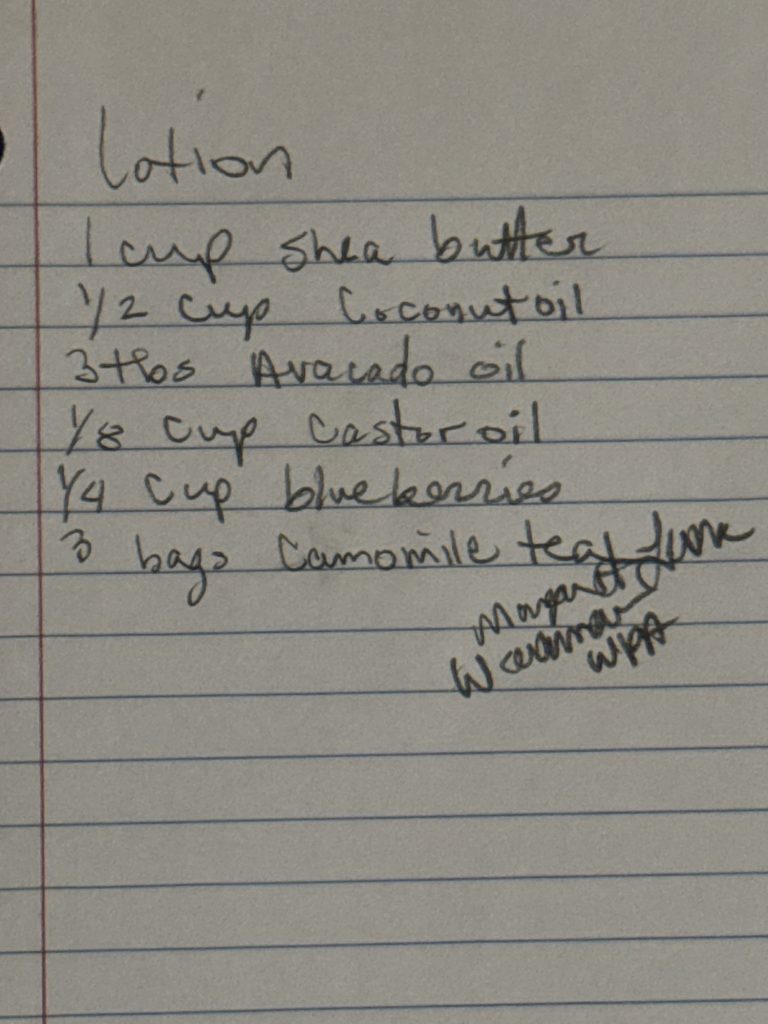 Lotion
1 cup shea butter
1/2 cup Coconut oil
3 tbs Avacado oil
1/8 cup Castor oil
1/4 cup blueberries
3 bags Camomile tea